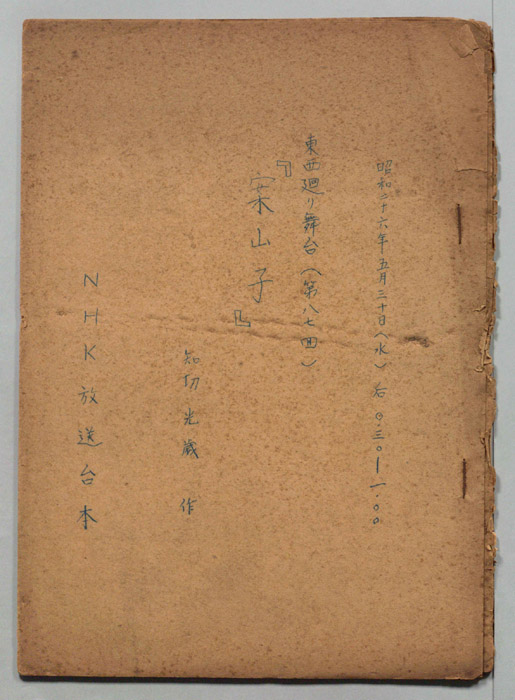 昭和二十六年五月三十日(水)后0.三〇—一.〇〇
東西廻り舞台(第八七回)
『案山子』
知切光歳 作
NHK放送台本